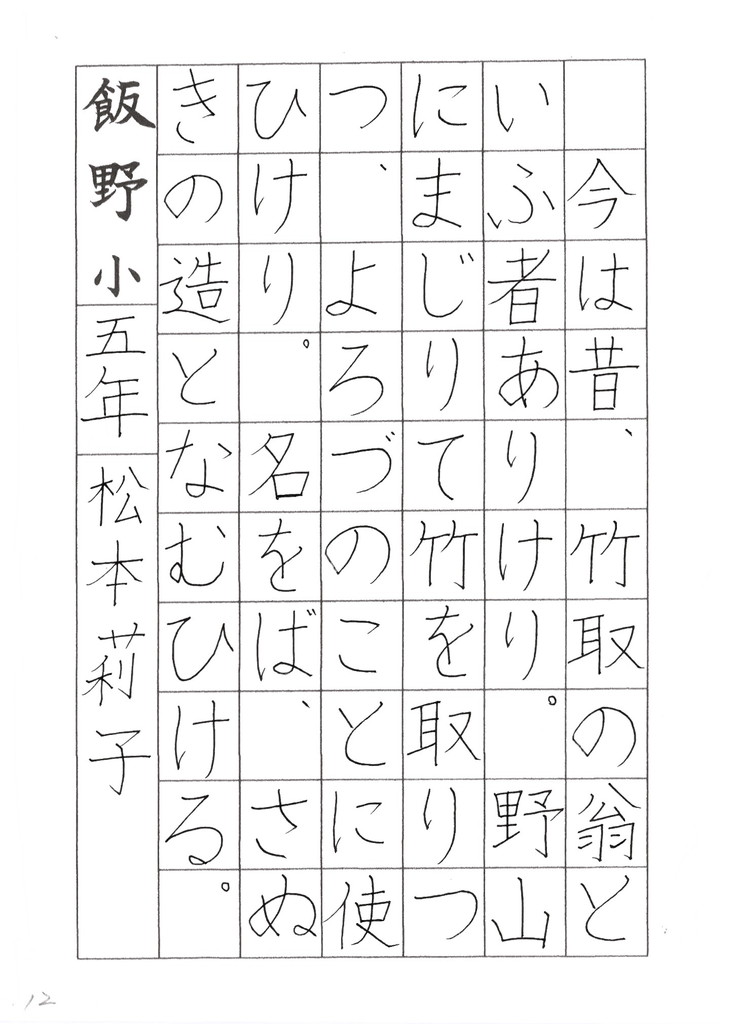 今は昔、竹取の翁と
いふ者ありけり。野山
にまじりて竹を取りつ
つ、よろづのことに使
ひけり。名をば、さぬ
きの造となむひける。
飯野小五年松本莉子
12